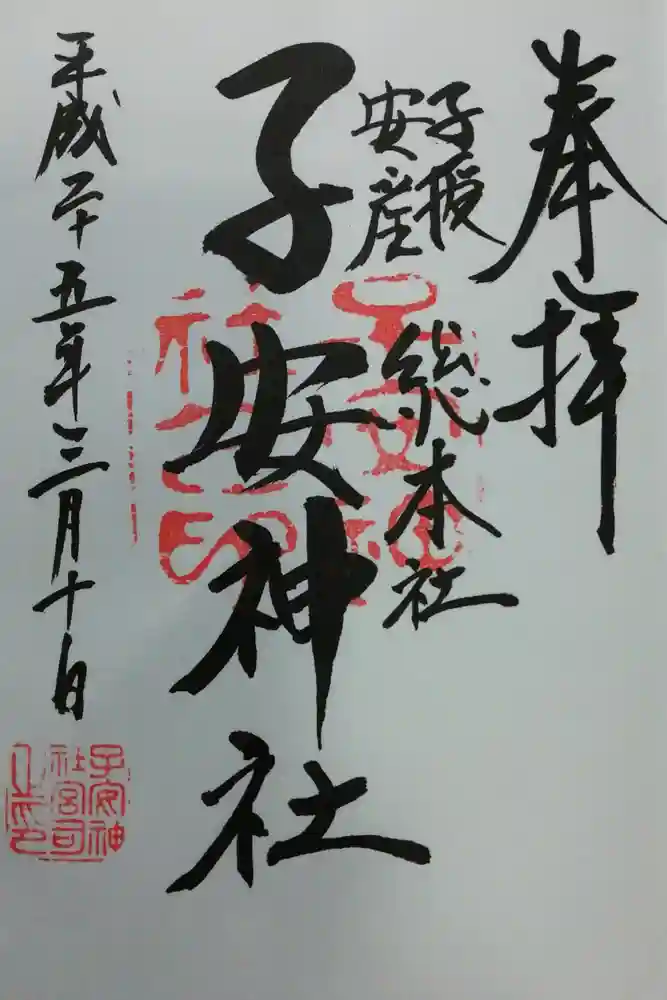 奉拝
子授
安産
総本社
子安神社
平成二十五年三月十日
子安神
社宮司
之印